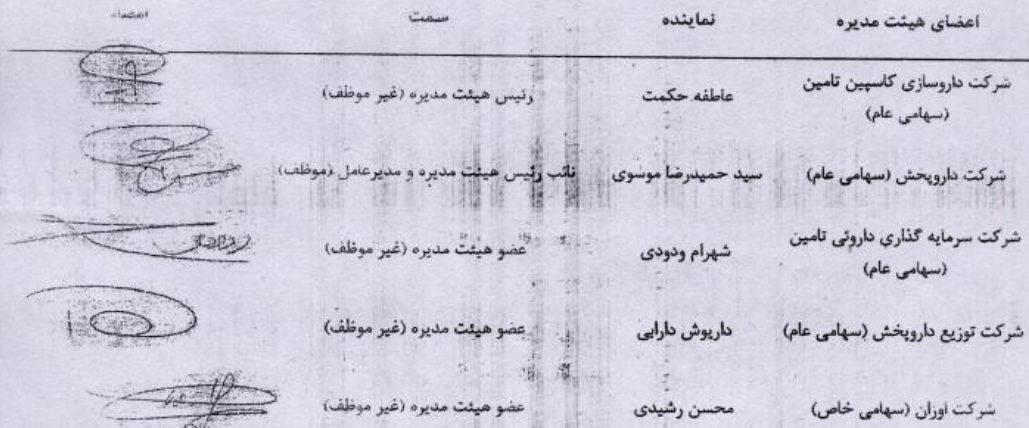 اعضای هیئت مدیره نماینده سمت امضاء
شرکت داروسازی کاسپین تامین
(سهامی عام) عاطفه حکمت رئیس هیئت مدیره (غیر موظف)
شرکت داروپخش (سهامی عام) سید حمیدرضا موسوی نائب رئیس هیئت مدیره و مدیرعامل (موظف)
شرکت سرمایه گذاری داروئی تامین
(سهامی عام) شهرام ودودی عضو هیئت مدیره (غیر موظف)
شرکت توزیع داروپخش (سهامی عام) داریوش دارابی عضو هیئت مدیره (غیر موظف)
شرکت اوزان (سهامی خاص) محسن رشیدی عضو هیئت مدیره (غیر موظف)